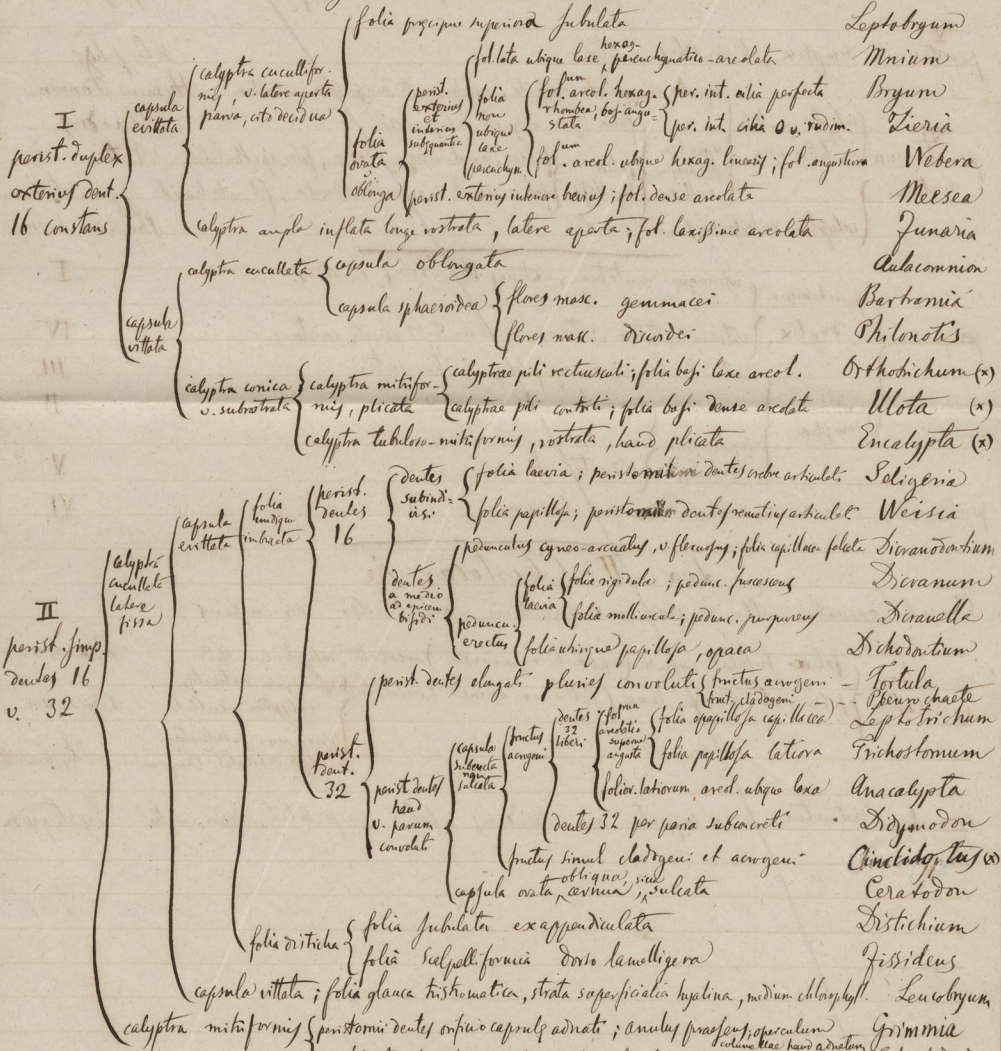 folia præcipue superiora subulata Leptobryum
fol. lata ubique laxe hexag. parenchymatico-areolata Mnium
calyptra cuculliformis, v. latere aperta parva, cito decidua
capsula evittata
I
perist. duplex
exterius dent.
16 constans
folia ovata v. oblonga
perist. exterius et interius subæquantia
folia non ubique laxe parenchym.
fol.um areol. hexag. rhombea, basi angustata
per. int. cilia perfecta Bryum
per. int. cilia 0 v. rudim. Zieria
fol.um areol. ubique hexag. linearis; fol. angustiora Webera
perist. exterius interiore brevius; fol. dense areolata Meesea
calyptra ampla inflata longe rostrata, latere aperta; fol. laxissime areolata Funaria
capsula vittata
calyptra cucullata
capsula oblongata Aulacomnion
capsula sphaeroidea
flores masc. gemmacei Bartramia
flores masc. discoidei Philonotis
calyptra conica v. subrostrata
calyptra mitriformis, plicata
calyptrae pili rectiusculi; folia basi laxe areol. Orthotrichum (x)
calyptrae pili contorti; folia basi dense areolata Ulota (x)
calyptra tubuloso-mitriformis, rostrata, haud plicata Encalypta (x)
II
perist. simp.
dentes 16
v. 32
calyptra cucullata latere fissa
capsula evittata
folia undique imbricata
perist. dentes 16
dentes subindivisi
folia laevia; peristomii dentes crebre articulati Seligeria
folia papillosa; peristomii dentes remotius articulati Weisia
dentes a medio ad apicem bifidi
pedunculus cygneo-arcuatus, v. flexuosus; folia capillacea falcata Dicranodontium
pedunc. erectus
folia laevia
folia rigidula; pedunc. fuscescens Dicranum
folia molliuscula; pedunc. purpureus Dicranella
folia utrinque papillosa, opaca Dichodontium
perist. dent. 32
perist. dentes elongati pluries convoluti
fructus acrogeni — Tortula
fruct. cladogeni — Pleurochaete
perist dentes haud v. parum convoluti
capsula suberecta non sulcata
fructus acrogeni
dentes 32 liberi
foliorum areolatio superne angusta
folia epapillosa capillacea Leptotrichum
folia papillosa latiora Trichostomum
folior. latiorum areol. ubique laxa Anacalypta
dentes 32 per paria subconcreti Didymodon
fructus simul cladogeni et acrogeni Cinclidotus (x)
capsula ovata, obliqua, cernua, sicca sulcata Ceratodon
folia disticha
folia subulata exappendiculata Distichium
folia scalpelliformia dorso lamelligera Fissidens
capsula vittata; folia glauca tristromatica, strata superficialia hyalina, medium chlorophyl. Leucobryum
calyptra mitriformis
peristomii dentes orificio capsulæ adnati; anulus praesens; operculum columellae haud adnatum Grimmia